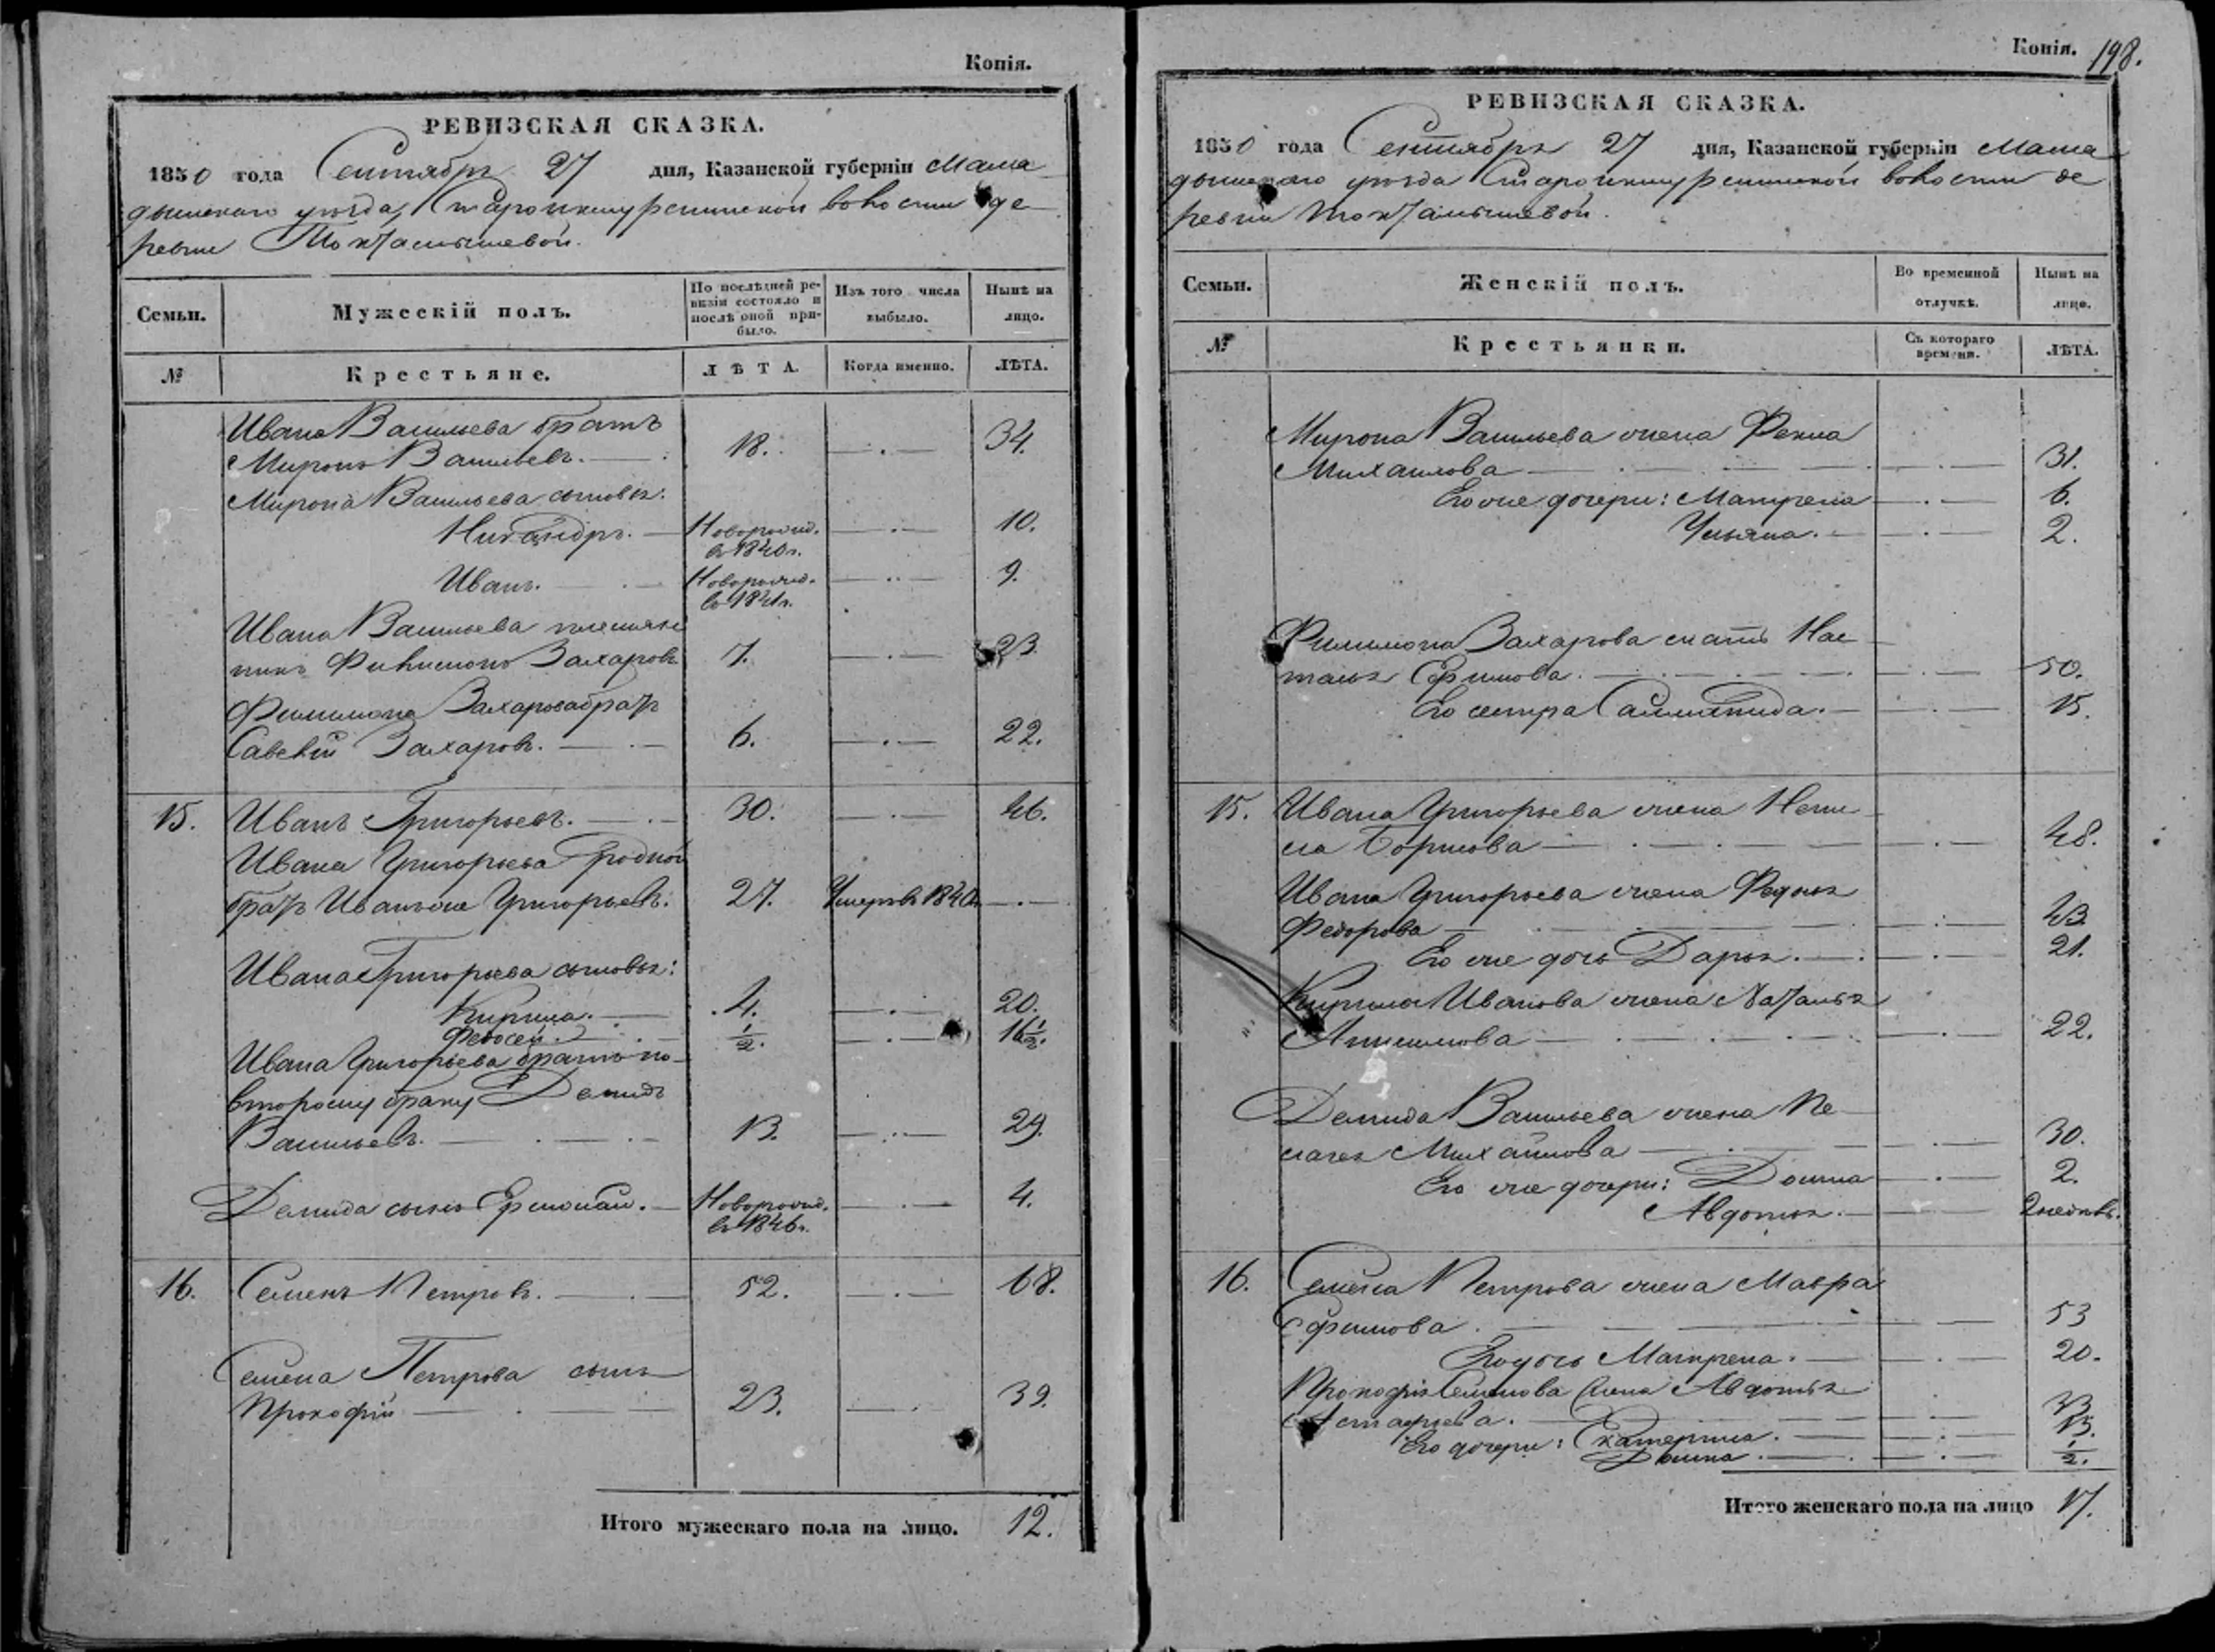 Копія.
РЕВИЗСКАЯ СКАЗКА.
1850 года Сентября 27 дня, Казанской губерніи Мама
дышскаго уѣзда, волости де
ревни Тохталышевой.
Семьи.
Мужескій полъ.
По послѣдней ре-
визіи состояло и
послѣ оной при-
было.
Изъ того числа
выбыло.
Нынѣ на
лицо.
№
Крестьяне.
ЛѢТА.
Когда именно.
ЛѢТА.
Ивана Васильева братъ
Миронъ Васильевъ. 18. 34.
Мирона Васильева сыновья:
Никандръ. Новорожд. 10.
въ 1840 г.
Иванъ. Новорожд. 9.
въ 1841 г.
Ивана Васильева племян
никъ Филимонъ Захаровъ 7. 23.
Филимона Захарова братъ
Савелій Захаровъ. 6. 22.
15. Иванъ Григорьевъ. 30. 46.
Ивана Григорьева родной
братъ Иванъ же Григорьевъ. 27. Умеръ въ 1840
Ивана Григорьева сыновья:
Кирила. 4. 20.
Федосей. ½. 16½.
Ивана Григорьева братъ по
второму браку Демидъ
Васильевъ. 13. 29.
Демида сынъ Ермолай. Новорожд. 4.
въ 1846 г.
16. Семенъ Петровъ. 52. 68.
Семена Петрова сынъ
Прокофій 23. 39.
Итого мужескаго пола на лицо. 12.
Копія. 198.
РЕВИЗСКАЯ СКАЗКА.
1850 года Сентября 27 дня, Казанской губерніи Мама
дышскаго уѣзда волости де
ревни Тохталышевой.
Семьи.
Женскій полъ.
Во временной
отлучкѣ.
Нынѣ на
лицо.
№
Крестьянки.
Съ котораго
времени.
ЛѢТА.
Мирона Васильева жена Фекла
Михаилова 31.
Его же дочери: Матрена 6.
Ульяна. 2.
Филимона Захарова мать Нас
тасья Ефимова. 50.
Его сестра 15.
15. Ивана Григорьева жена Нени
ла Борисова 48.
Ивана Григорьева жена Федосья
Федорова 43
Его же дочь Дарья. 21.
Кирила Иванова жена Наталья
Анисимова 22.
Демида Васильева жена Пе
лагея Михайлова 30.
Его же дочери: Домна 2.
Авдотья. 2 недѣль.
16. Семена Петрова жена Мавра
Ефимова. 53
Его дочь Матрена. 20.
Прокофія Семенова жена Авдотья
Астафьева. 33
Его дочери: Екатерина. 13.
Домна. ½.
Итого женскаго пола на лицо 17.